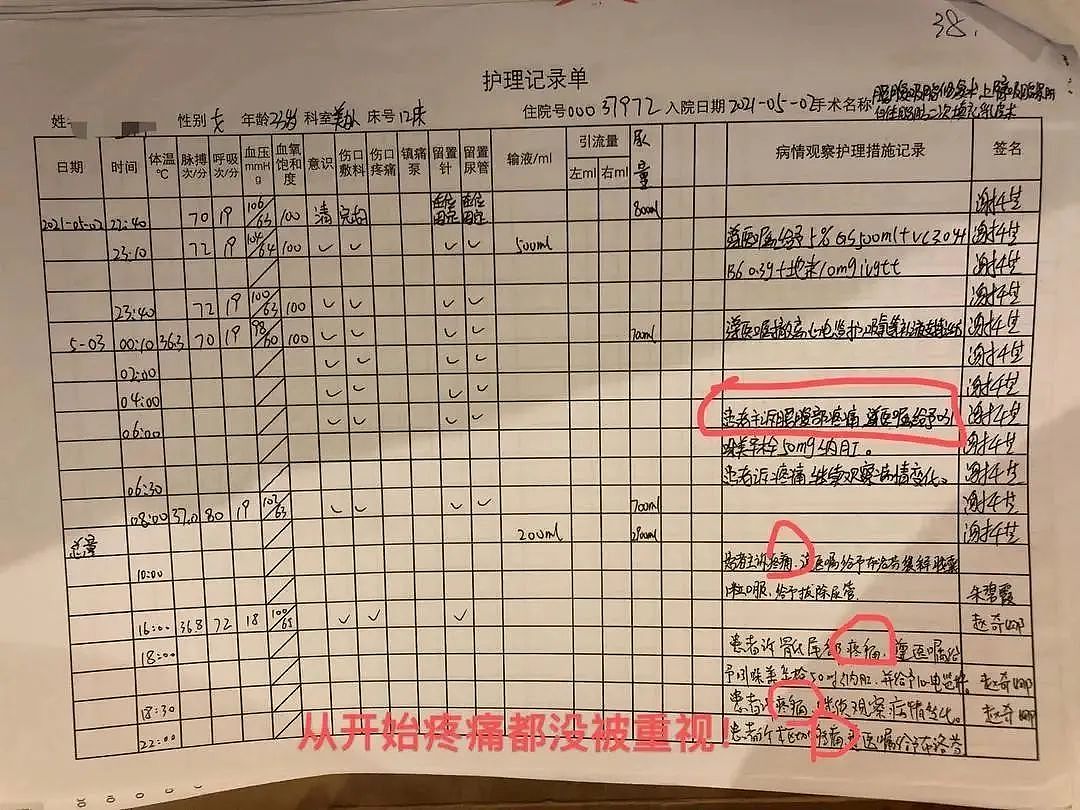 38.
护理记录单
姓: 性别 女 年龄 33岁 科室 美外 床号 12床 住院号 00037972 入院日期 2021-05-02 手术名称
日期 时间 体温℃ 脉搏次/分 呼吸次/分 血压mmHg 血氧饱和度 意识 伤口敷料 伤口疼痛 镇痛泵 留置针 留置尿管 输液/ml 引流量 左ml 右ml 尿量 病情观察护理措施记录 签名
2021-05-02 22:40 70 19 106/63 100 清 完好 在位固定 在位固定 800ml
23:10 72 19 104/64 100 ✓ ✓ ✓ ✓ 500ml 遵医嘱给予5%GS500ml+VC3.0+
B6 0.3g+地米10mg ivgtt
23:40 72 19 100/63 100 ✓ ✓ ✓ ✓
5-03 00:10 36.3 70 19 98/60 100 ✓ ✓ ✓ ✓ 700ml 遵医嘱撤离心电监护、吸氧
02:00 ✓ ✓ ✓ ✓
04:00 ✓ ✓ ✓ ✓
06:00 ✓ ✓ ✓ ✓ 患者主诉腰腹部疼痛,遵医嘱给予吲
哚美辛栓50mg纳肛。
06:30 患者诉疼痛 继续观察病情变化。
08:00 37.0 80 19 102/63 ✓ ✓ ✓ ✓ 700ml
总量 2000ml 2900ml
10:00 患者主诉疼痛,遵医嘱给予布洛芬缓释胶囊
1粒口服,给予拔除尿管。 朱碧霞
16:00 36.8 72 18 100/65 ✓ ✓ ✓
18:00 患者诉骶尾部疼痛,遵医嘱给
予吲哚美辛栓50mg纳肛,并给予心电监护。
18:30 患者诉疼痛,继续观察病情变化。
22:00 患者诉 疼痛 遵医嘱给予布洛芬
从开始疼痛都没被重视!